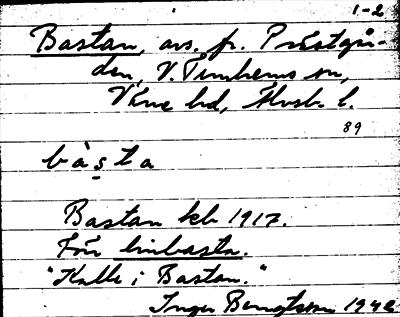 1-2
Bastan, avs. fr. Prästgår-
den, V. Tunhems sn,
Väne hd, Älvsb. l.
89
bàsta
Bastan kb 1917.
Förr linbasta.
"Kalle i Bastan."
Inger Bengtsson 1942